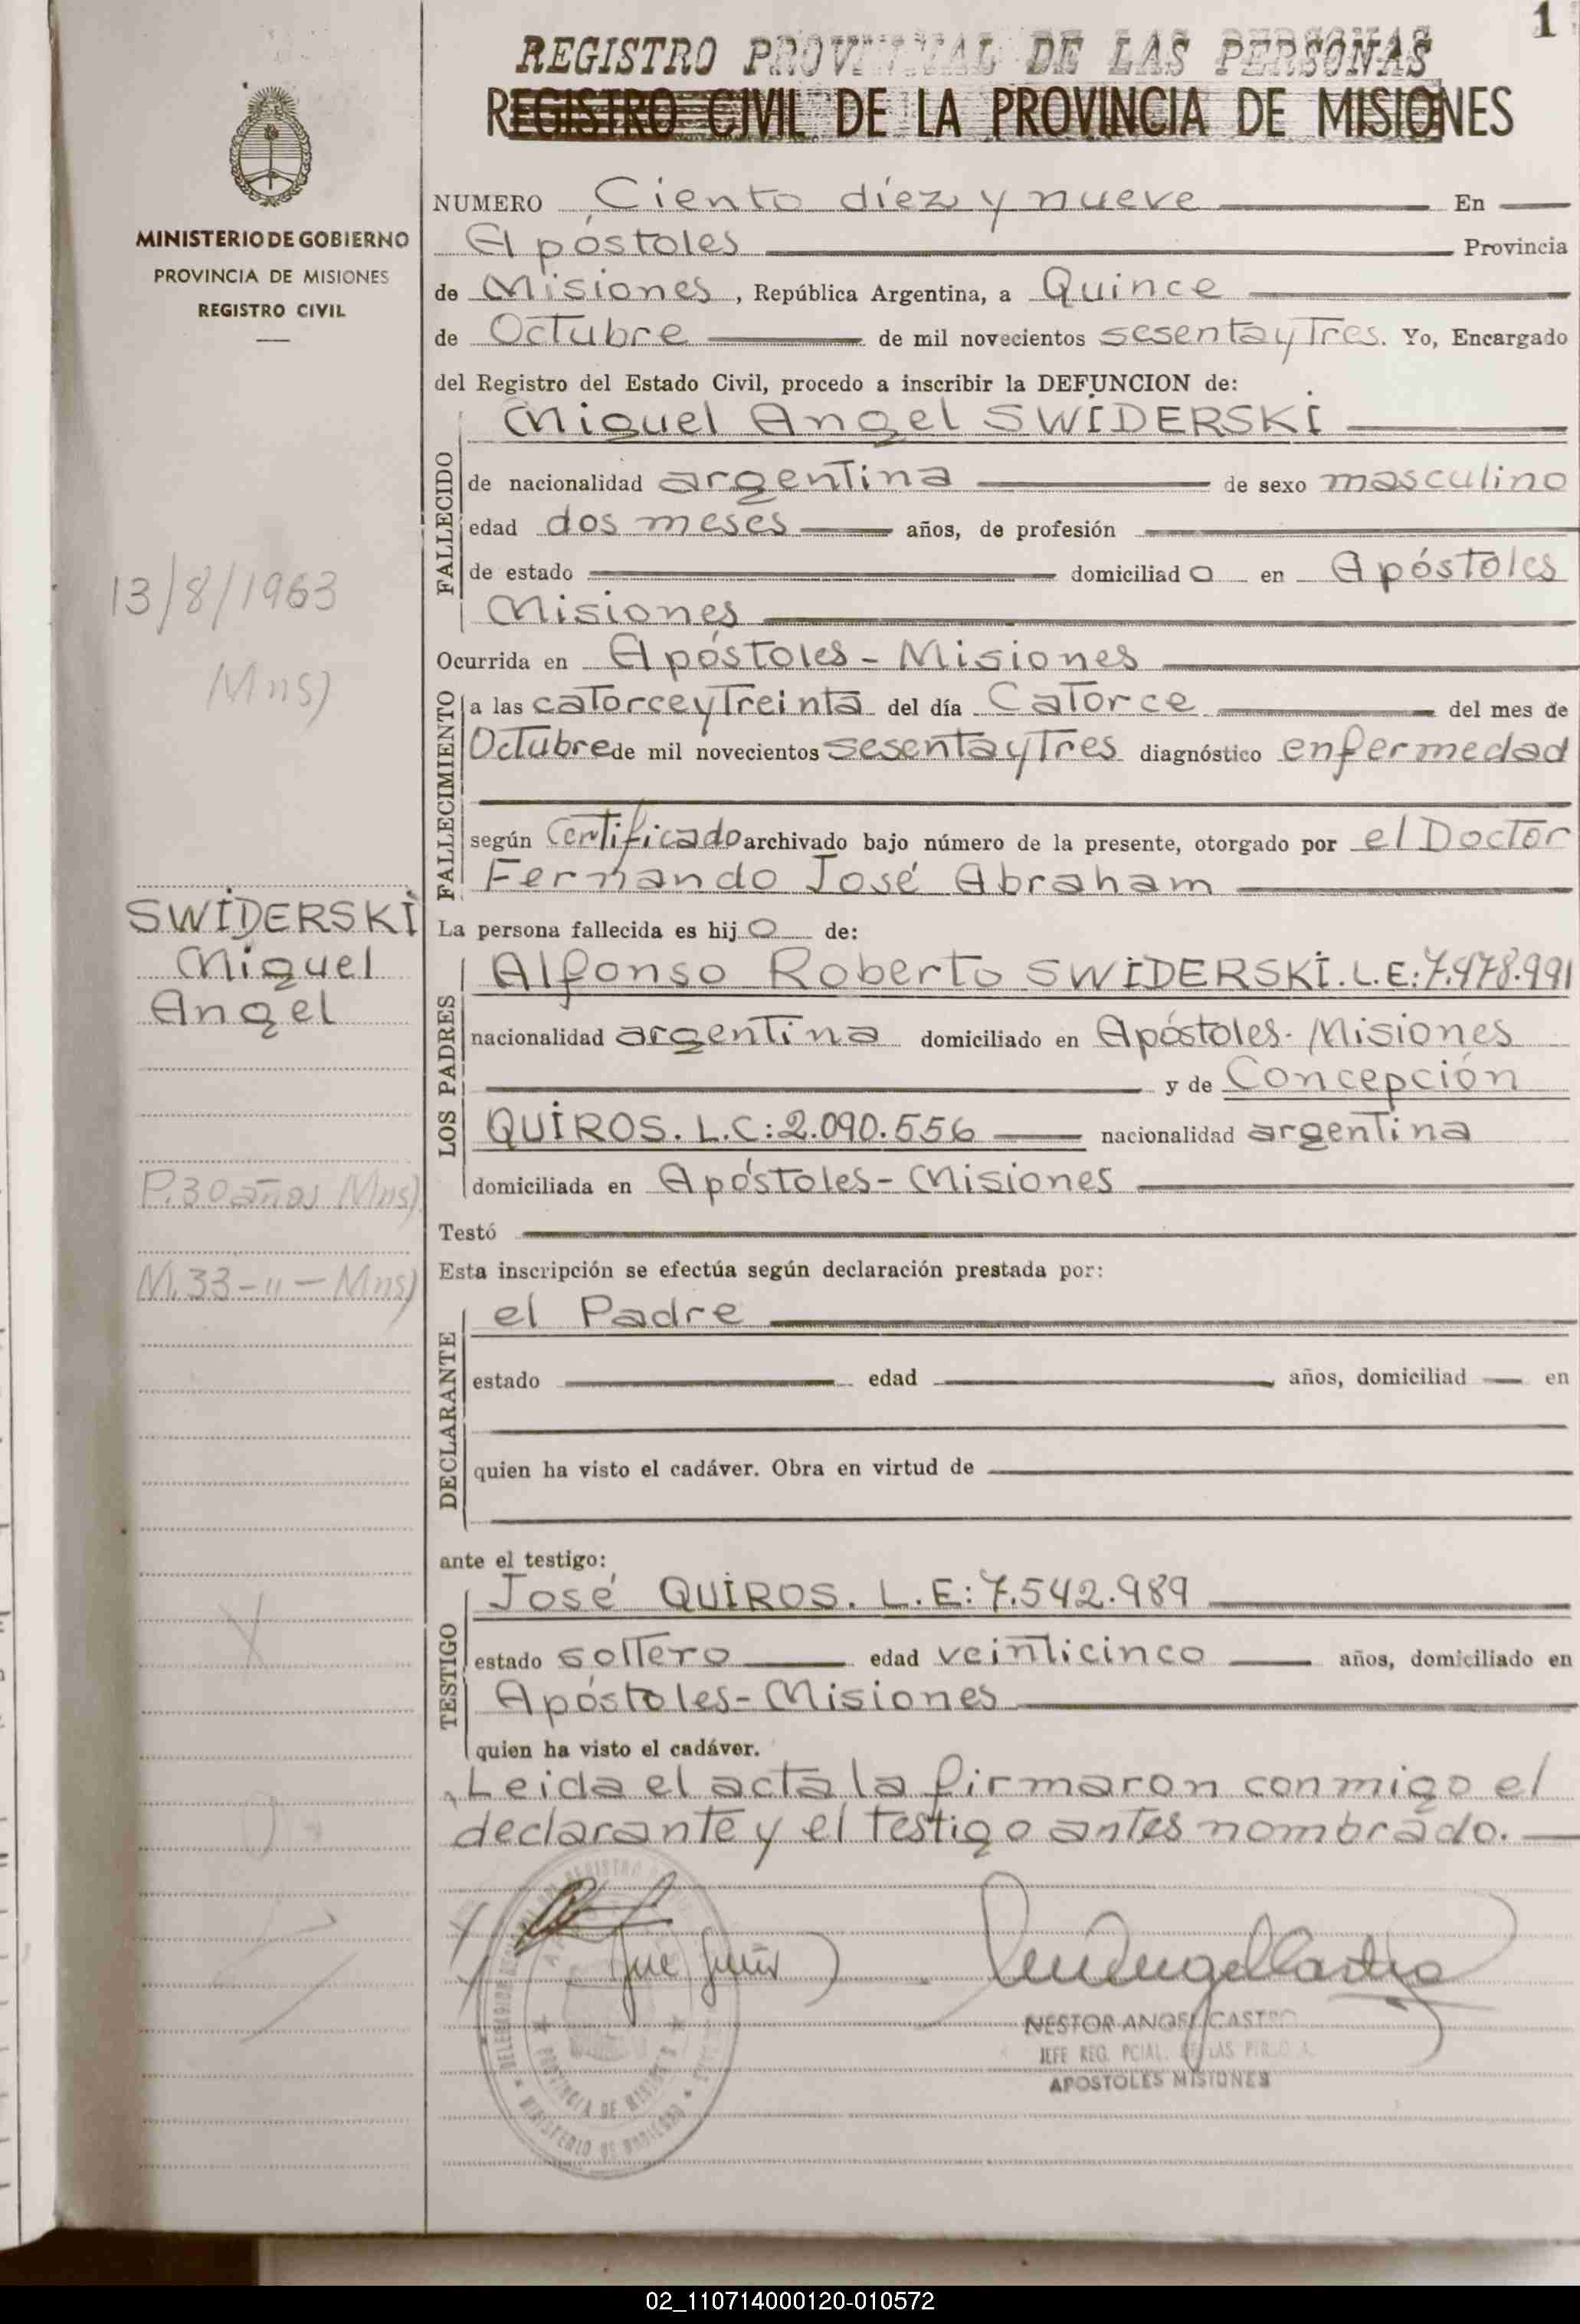 1
REGISTRO PROVINCIAL DE LAS PERSONAS
REGISTRO CIVIL DE LA PROVINCIA DE MISIONES
MINISTERIO DE GOBIERNO
PROVINCIA DE MISIONES
REGISTRO CIVIL
13/8/1963
Mns)
SWIDERSKI
Miguel
Angel
P. 30 años Mns)
M. 33 - " - Mns)
NUMERO Ciento diez y nueve En
Apóstoles Provincia
de Misiones, República Argentina, a Quince
de Octubre de mil novecientos sesenta y Tres. Yo, Encargado
del Registro del Estado Civil, procedo a inscribir la DEFUNCION de:
FALLECIDO
Miguel Angel SWIDERSKI
de nacionalidad argentina de sexo masculino
edad dos meses años, de profesión
de estado domiciliado en Apóstoles
Misiones
Ocurrida en Apóstoles - Misiones
FALLECIMIENTO
a las catorce y Treinta del día Catorce del mes de
Octubre de mil novecientos sesenta y Tres diagnóstico enfermedad
según Certificado archivado bajo número de la presente, otorgado por el Doctor
Fernando José Abraham
La persona fallecida es hijo de:
LOS PADRES
Alfonso Roberto SWIDERSKI. L.E: 7.478.991
nacionalidad argentina domiciliado en Apóstoles - Misiones
y de Concepción
QUIROS. L.C: 2.090.556 nacionalidad argentina
domiciliada en Apóstoles - Misiones
Testó
Esta inscripción se efectúa según declaración prestada por:
DECLARANTE
el Padre
estado edad años, domiciliad en
quien ha visto el cadáver. Obra en virtud de
ante el testigo:
TESTIGO
José QUIROS. L.E: 7.542.989
estado soltero edad veinticinco años, domiciliado en
Apóstoles - Misiones
quien ha visto el cadáver.
Leida el acta la firmaron conmigo el
declarante y el testigo antes nombrado.
NESTOR ANGEL CASTRO
JEFE REG. PCIAL. DE LAS PER.
APOSTOLES MISIONES
PROVINCIA DE MISIONES
MINISTERIO DE GOBIERNO
02_110714000120-010572